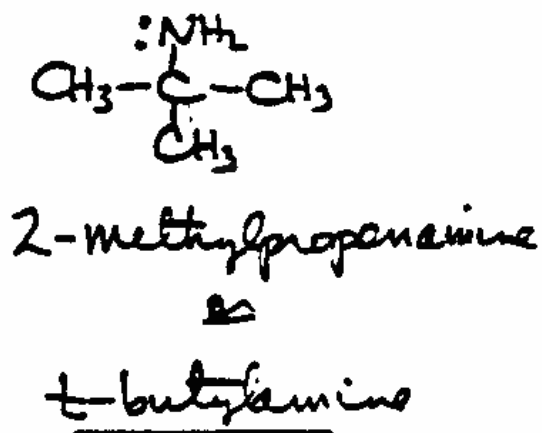 :NH2
CH3-C-CH3
CH3
2-methylpropanamine
or
t-butylamine